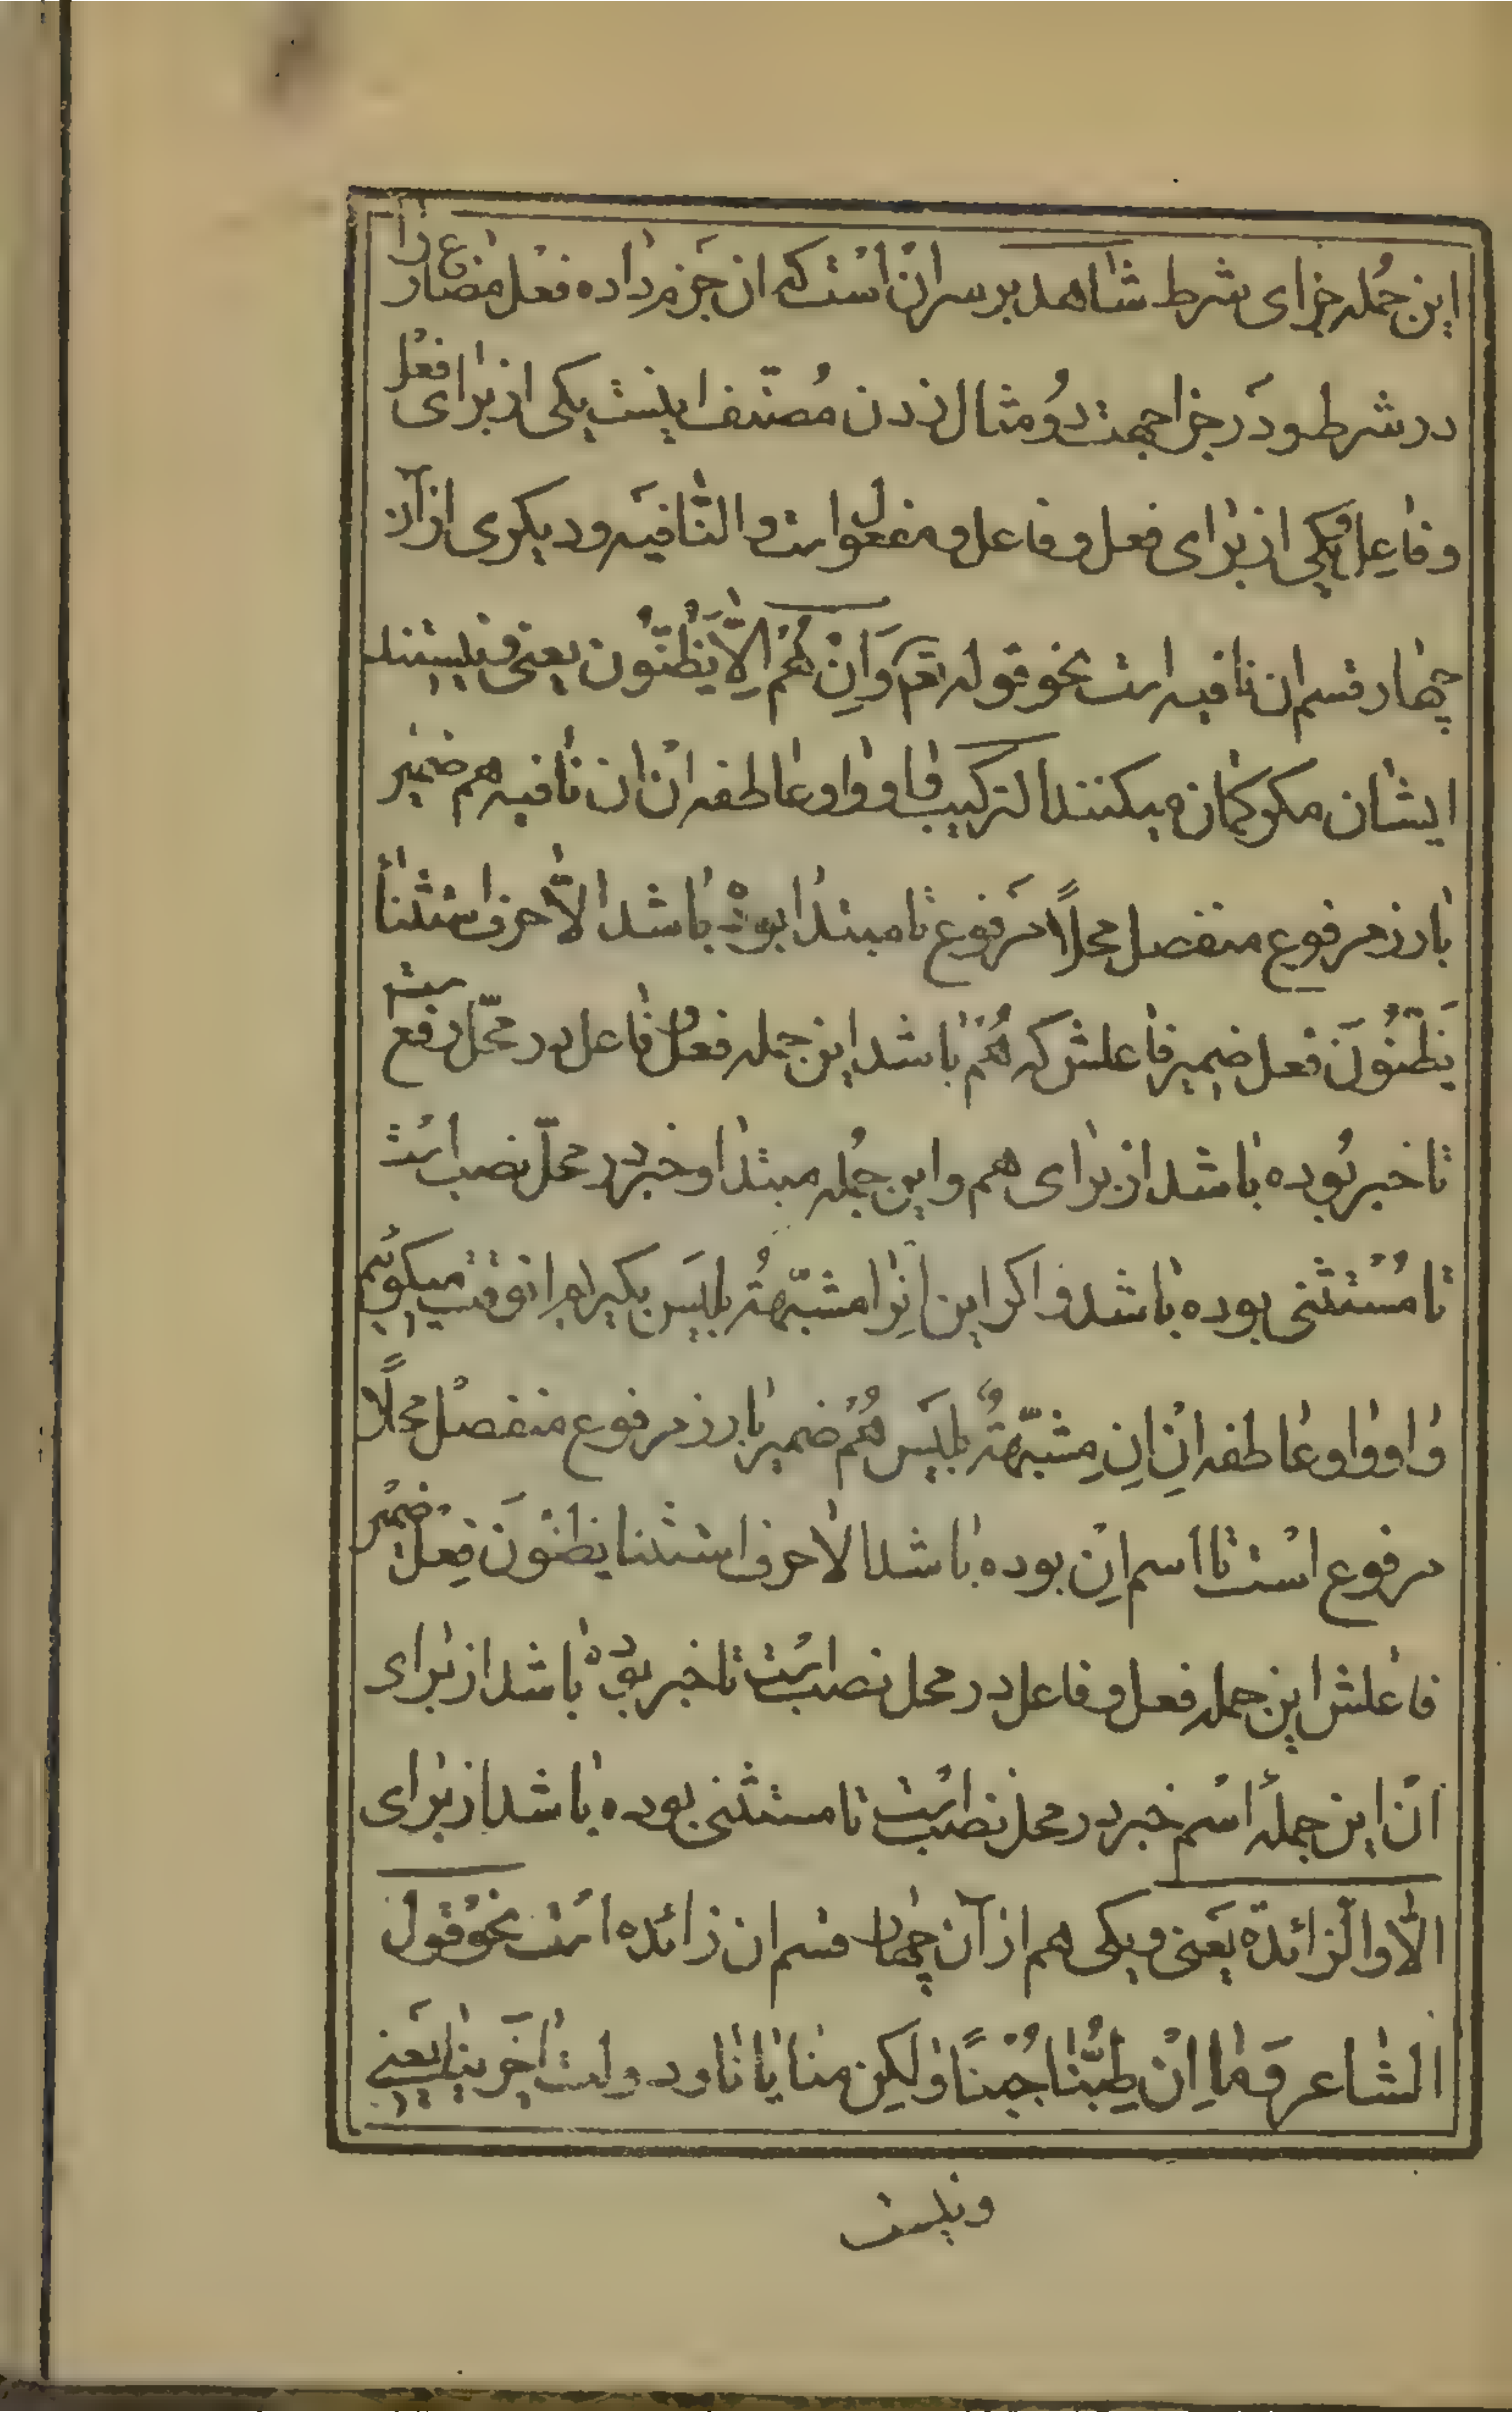 این جُمله جزای شرط شاهد بر سر انْ اسْت که ان جَزم داده فعْل مضارع را
در شرط و دَر جزا جهت دوُ مثال زدن مُصنّف اینست یکی از برای فعْل
و فاعِل وُیکی از برای فعل و فاعل و مفعول است و النّافیَه و دیکری از آن
چهار قسم ان نافیه است نحو قوله تعَ وَاِنْ هُمْ اِلّاٰ یَظُنُّونَ یعنی و نیستند
ایشان مکر کمان میکنند الترکیب واو واو عاطفه انْ ان نافیه هم ضمیْر
بارز مرفوع منفصل محلاً مَرفوع تا مبتدا بودهْ باشد الّا حرف استثنا
یَظنُّونَ فعل ضمیر فاعلش که هُمْ باشد این جمله فعل و فاعل در محّل رفع است
تا خبر بُوده باشد از برای هم و این جُمله مبتدا و خبر در محلّ نصب است
تا مُسْتثنی بوده باشد و اکر این اِن را مشبّهةُ بلیَس بکیرم انوقت میکوئیم
واو واو عاطفه انِ انِ مِشبّهةُ بلیَس هُمْ ضمیر بارز مرفوع منفصْل محلاً
مرفوع اسْت تا اسم انِ بوده باشد الّا حرف استثنا یظنّونَ فِعْل ضمیْر
فاعلش این جمله فعل و فاعل در محل نصب است تا خبر بودهْ باشد از برای
انْ این جملهٔ اسْم خبر در محل نصب است تا مستثنی بوده باشد از برای
الّا و الّزائدة یَعنی و یکی هم از آن چهار قسم ان زائده است نحوُ قول
الشاعر وَما اِنْ طِبُّنا جُبْنًا وَلکِن منایانا ودولت اخَرینا یعَنی
ونیست